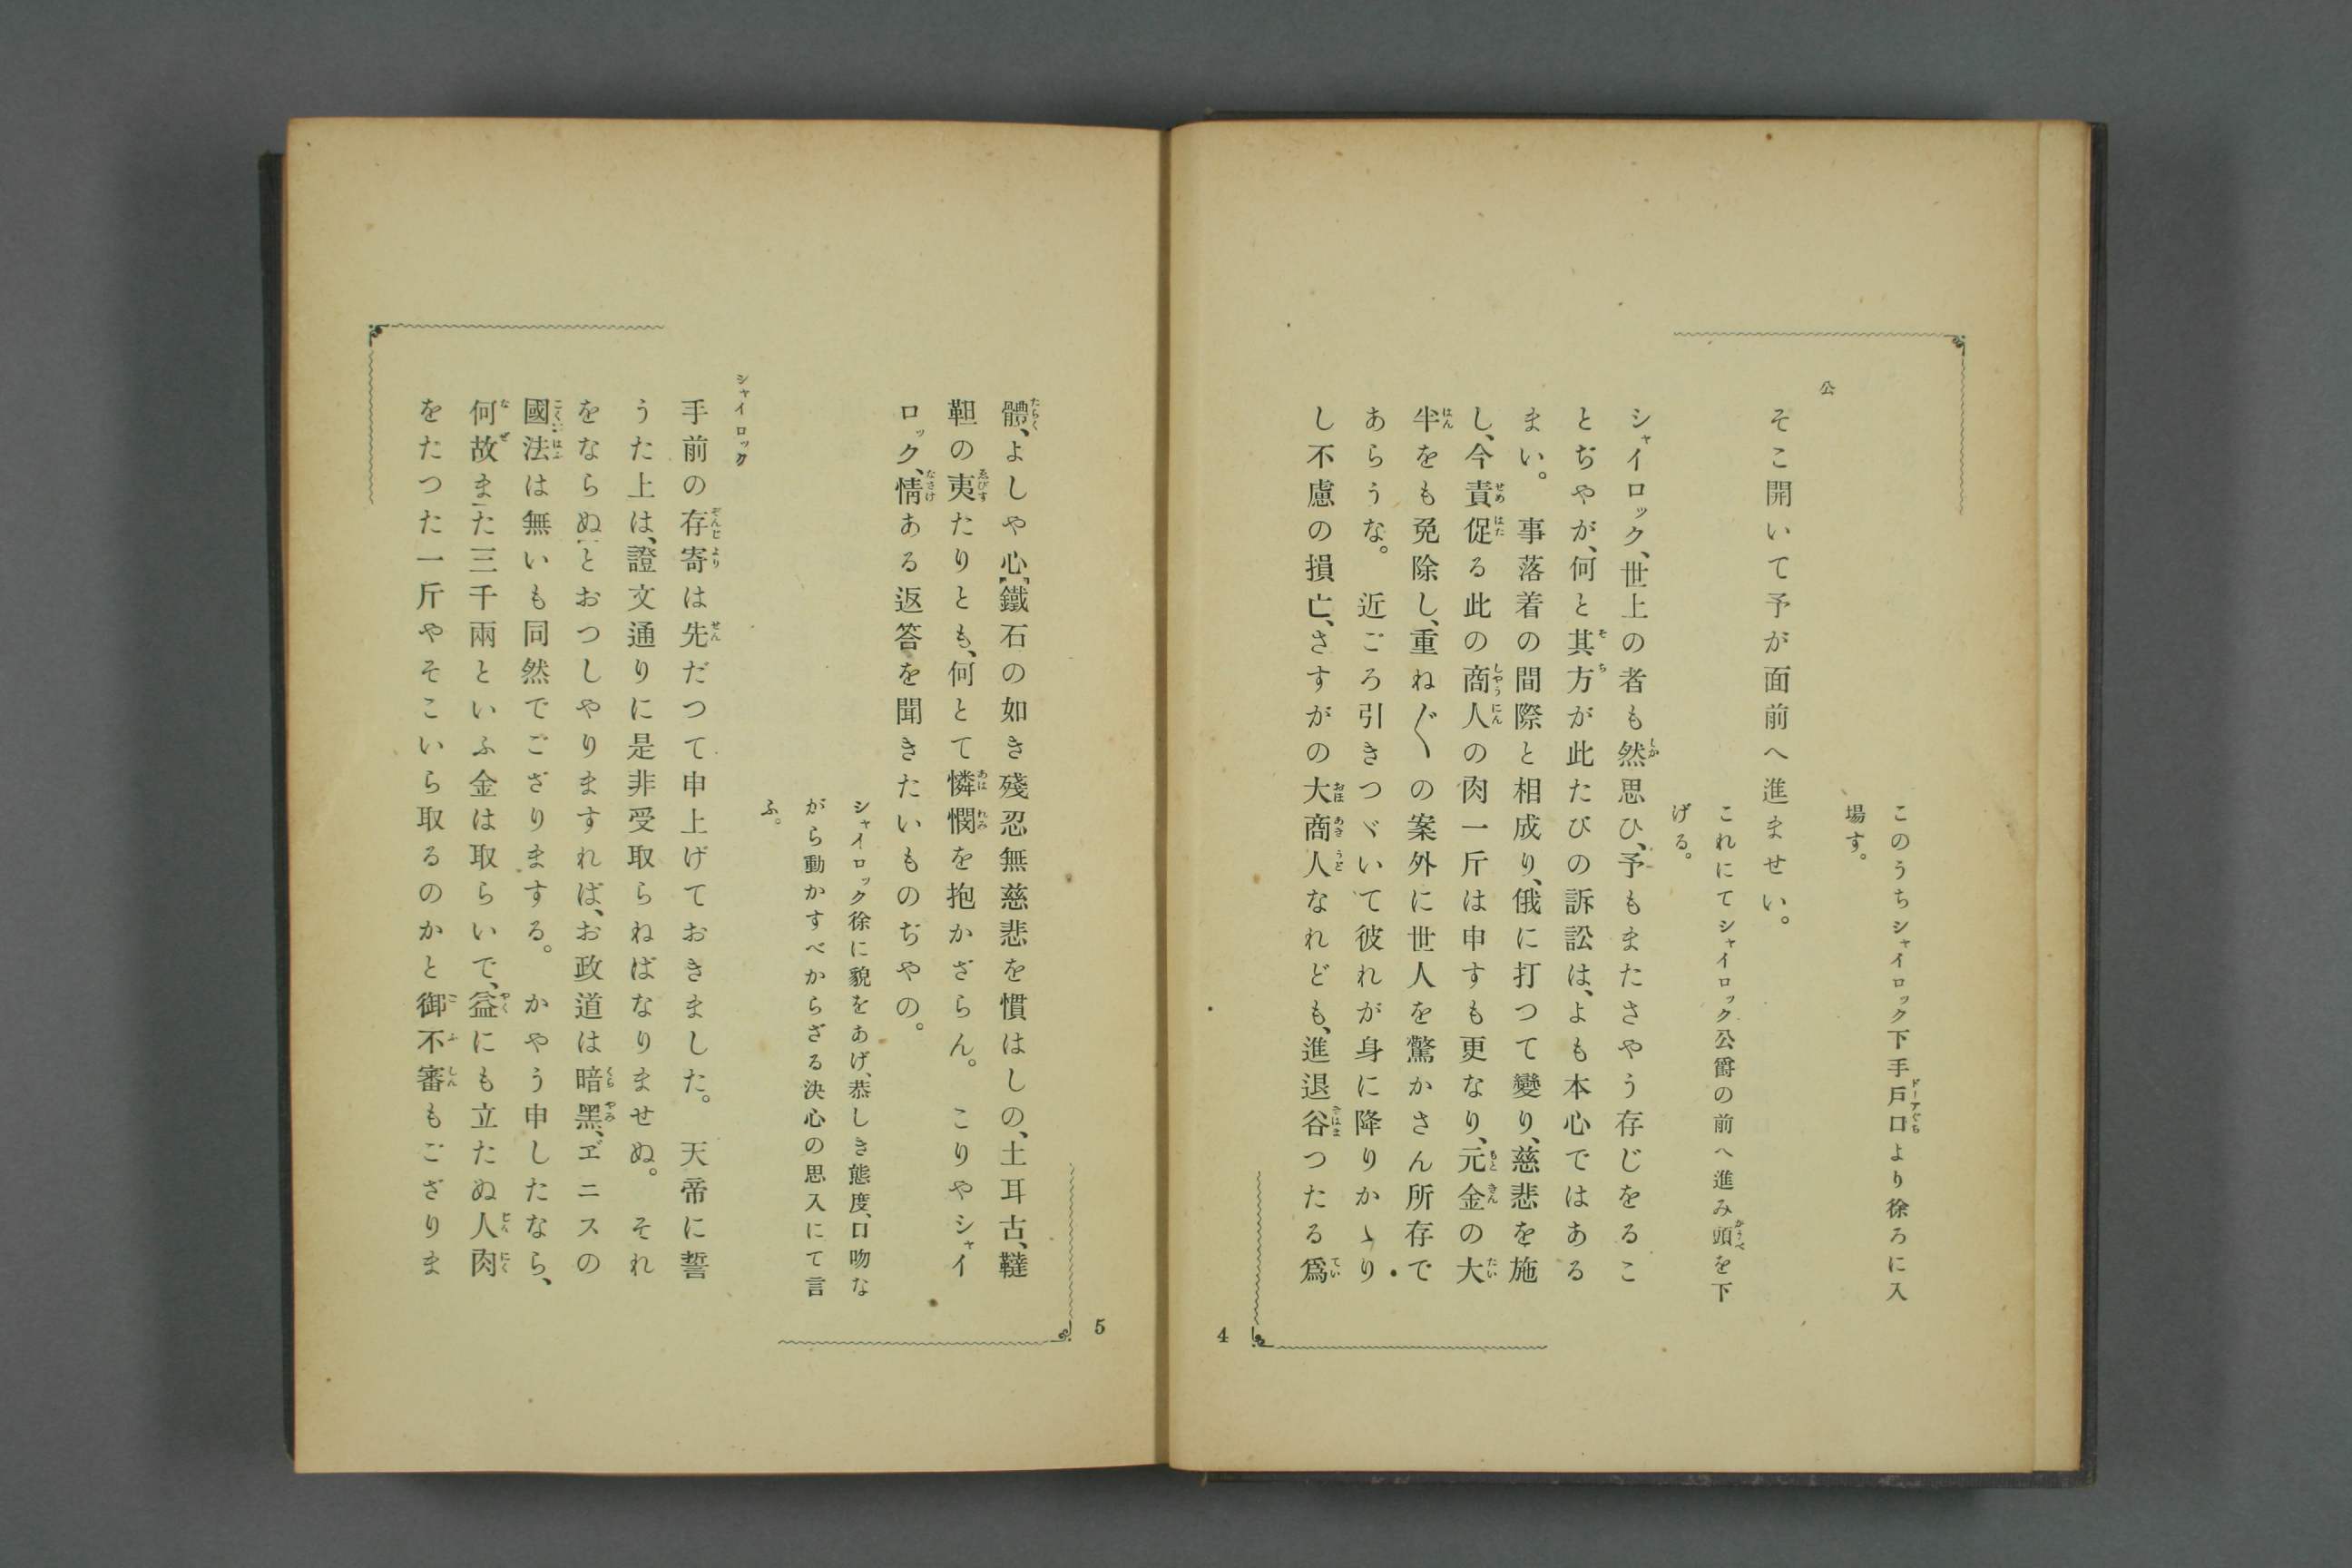 このうちシャイロック下手戸口より徐ろに入
場す。
公
そこ開いて予が面前へ進ませい。
これにてシャイロック公爵の前へ進み頭を下
げる。
シャイロック、世上の者も然思ひ、予もまたさやう存じをるこ
とぢやが、何と其方が此たびの訴訟は、よも本心ではある
まい。　事落着の間際と相成り、俄に打つて變り、慈悲を施
し、今責促る此の商人の肉一斤は申すも更なり、元金の大
半をも免除し、重ね〴〵の案外に世人を驚かさん所存で
あらうな。　近ごろ引きつゞいて彼れが身に降りかゝり
し不慮の損亡、さすがの大商人なれども、進退谷つたる爲
4
體、よしや心鐵石の如き殘忍無慈悲を慣はしの、土耳古、韃
靼の夷たりとも、何とて憐憫を抱かざらん。　こりやシャイ
ロック、情ある返答を聞きたいものぢやの。
シャイロック徐に貌をあげ、恭しき態度、口吻な
がら動かすべからざる決心の思入にて言
ふ。
シャイロック
手前の存寄は先だつて申上げておきました。　天帝に誓
うた上は、證文通りに是非受取らねばなりませぬ。　それ
をならぬとおつしやりますれば、お政道は暗黑、ヹニスの
國法は無いも同然でござりまする。　かやう申したなら、
何故また三千兩といふ金は取らいで、益にも立たぬ人肉
をたつた一斤やそこいら取るのかと御不審もござりま
5